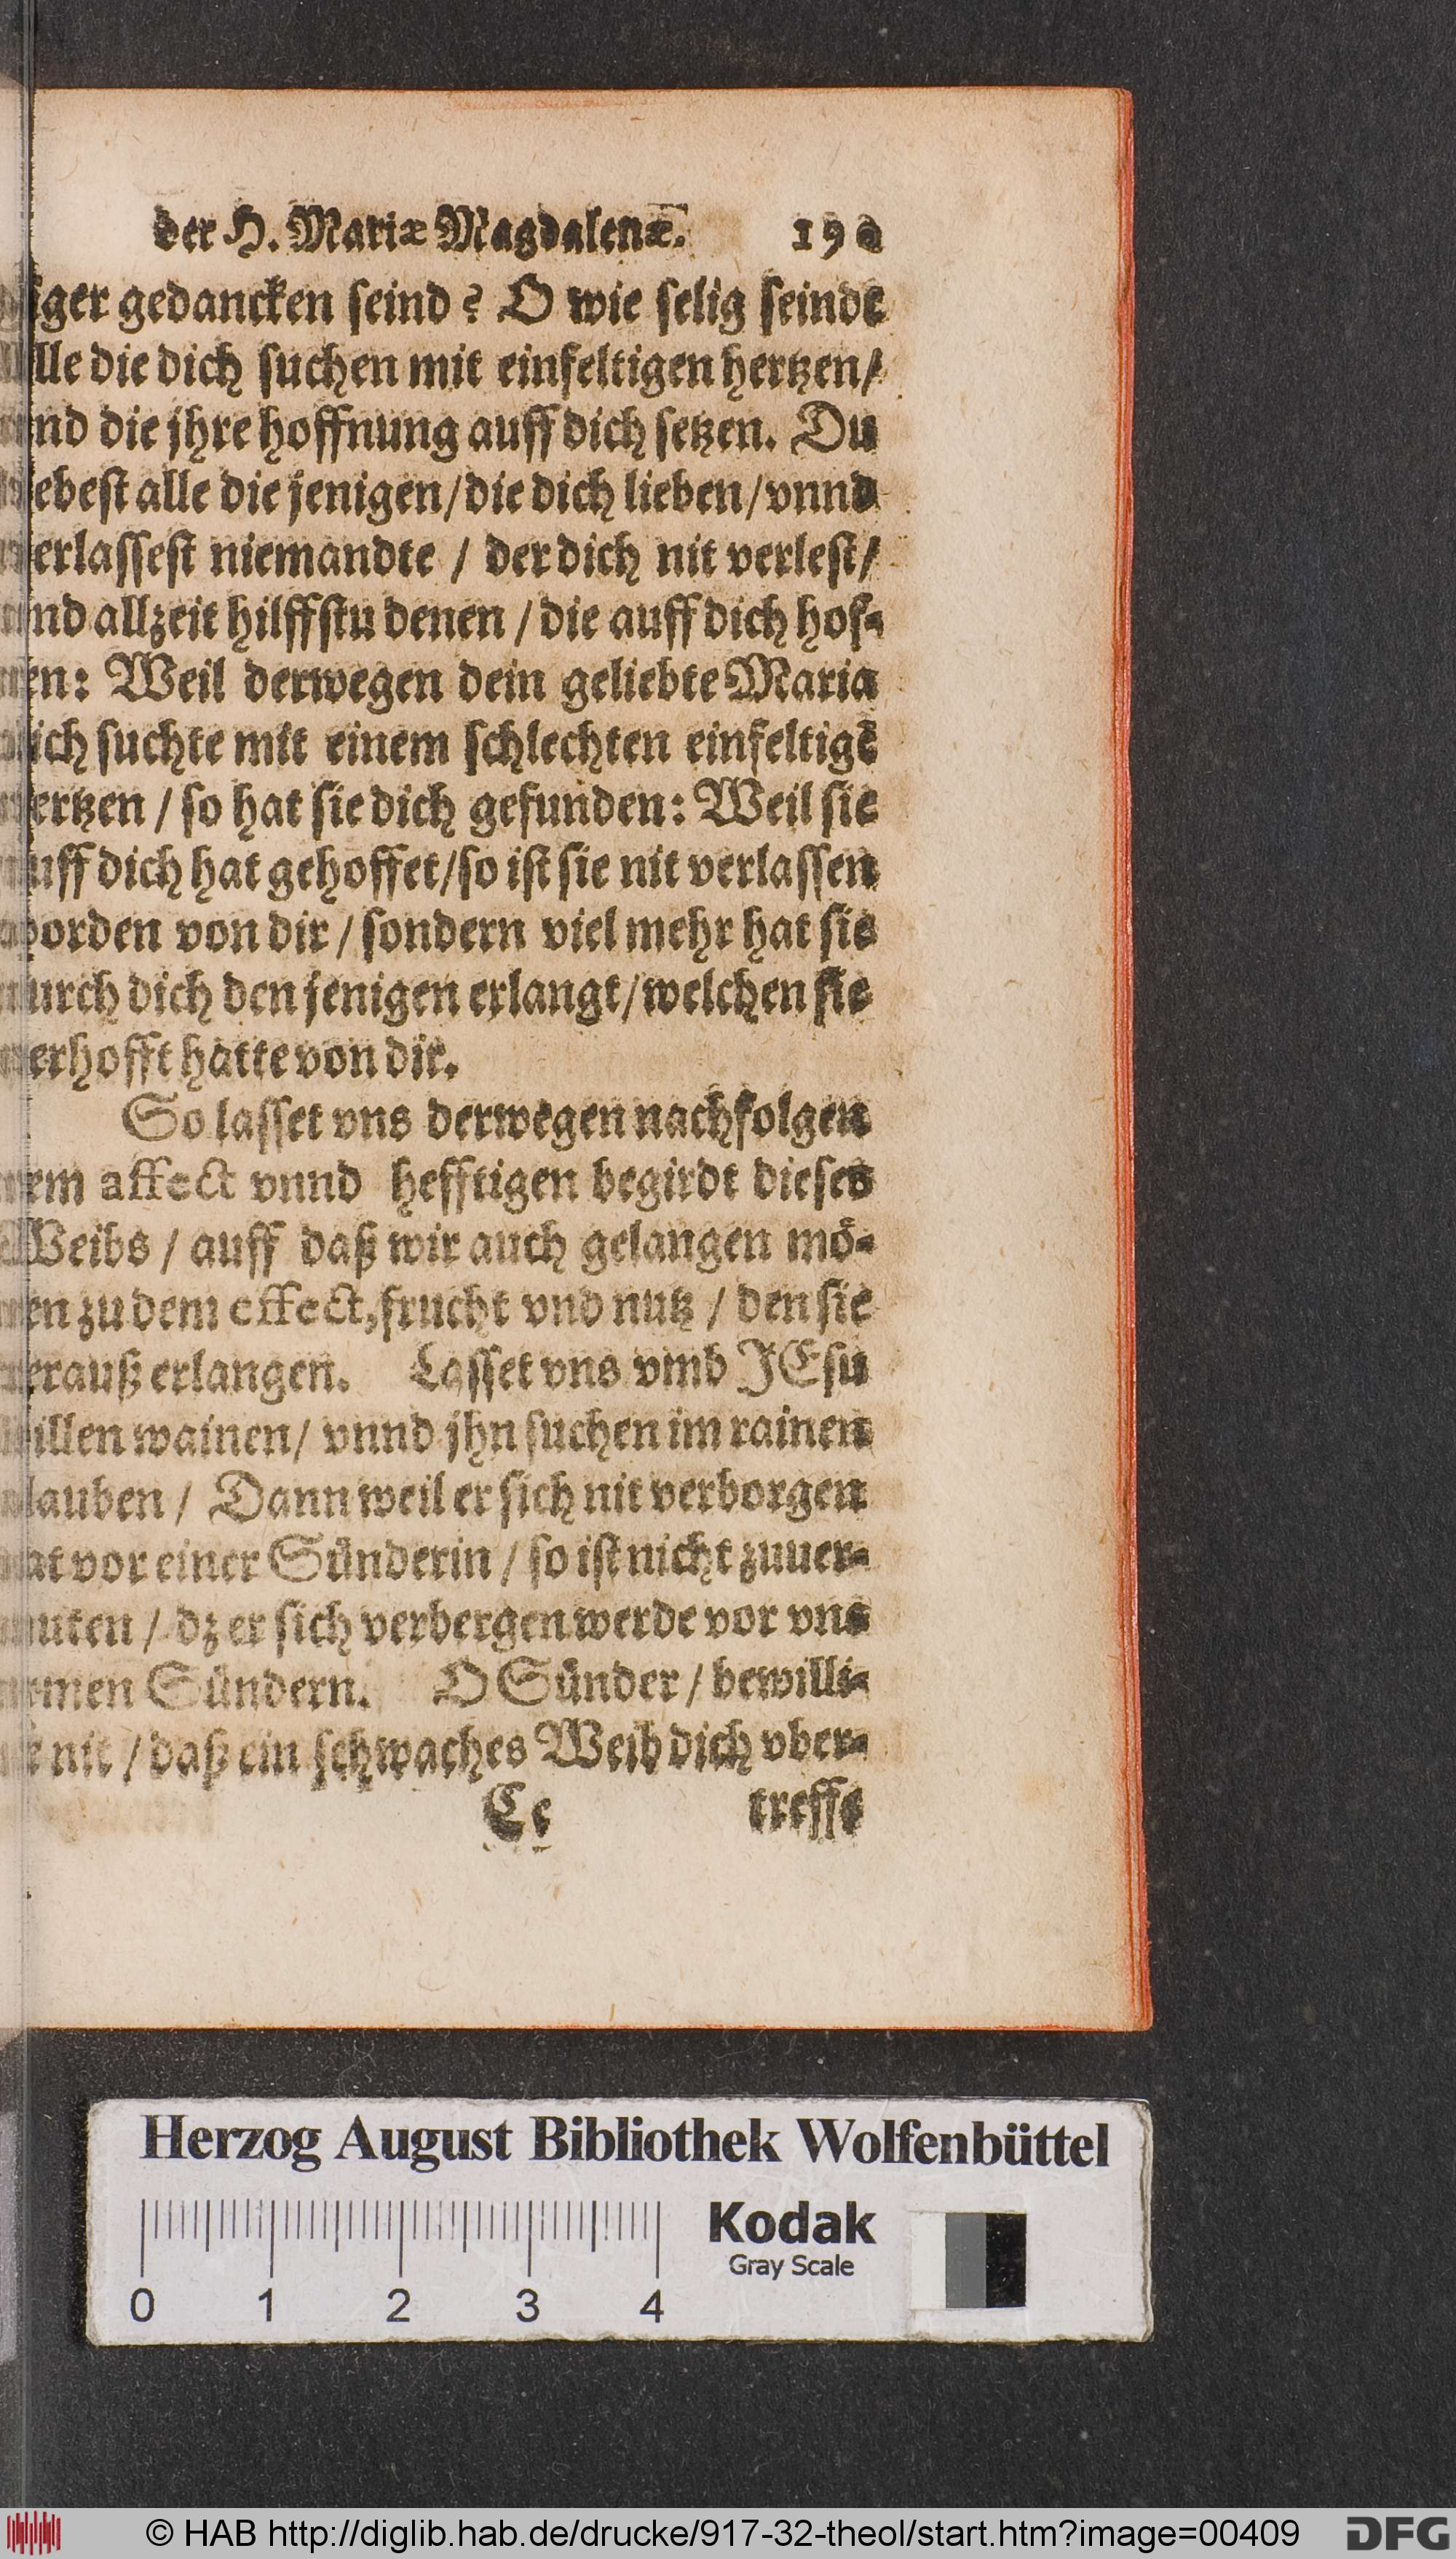 der H. Mariæ Magdalenæ. 190
iger gedancken seind? O wie selig seindt
alle die dich suchen mit einfeltigen hertzen/
vnd die jhre hoffnung auff dich setzen. Du
liebest alle die jenigen/die dich lieben/vnnd
verlassest niemandte / der dich nit verlest/
vnd allzeit hilffstu denen / die auff dich hof-
fen: Weil derwegen dein geliebte Maria
dich suchte mit einem schlechten einfeltigē
hertzen / so hat sie dich gefunden: Weil sie
auff dich hat gehoffet/so ist sie nit verlassen
worden von dir / sondern viel mehr hat sie
durch dich den jenigen erlangt/welchen sie
verhofft hatte von dir.
So lasset vns derwegen nachfolgen
dem affect vnnd hefftigen begirdt dieses
Weibs / auff daß wir auch gelangen mö-
gen zu dem effect, frucht vnd nutz / den sie
herauß erlangen. Lasset vns vmb JEsu
willen wainen/ vnnd jhn suchen im rainen
glauben / Dann weil er sich nit verborgen
hat vor einer Sünderin / so ist nicht zuuer-
muten / dz er sich verbergen werde vor vns
armen Sündern. O Sünder / bewilli-
ge nit / daß ein schwaches Weib dich vber-
Cc treffe
Herzog August Bibliothek Wolfenbüttel
Kodak
Gray Scale
0 1 2 3 4
© HAB http://diglib.hab.de/drucke/917-32-theol/start.htm?image=00409 DFG